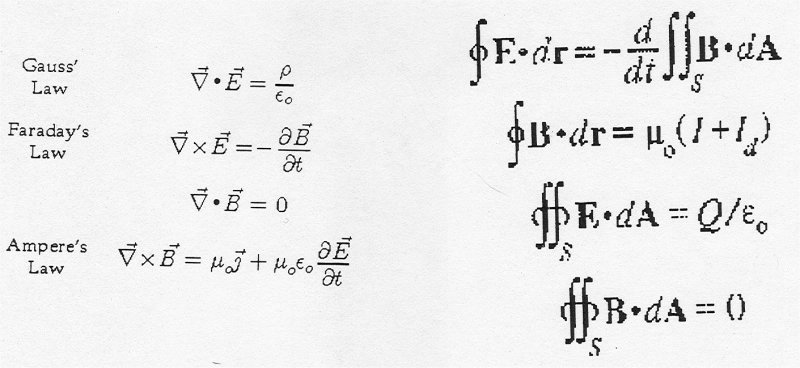 Gauss'
Law
∇⃗ • E⃗ = ρ/ϵₒ
Faraday's
Law
∇⃗ × E⃗ = − ∂B⃗/∂t
∇⃗ • B⃗ = 0
Ampere's
Law
∇⃗ × B⃗ = μₒj⃗ + μₒϵₒ ∂E⃗/∂t
∮E•dr = − d/dt ∬_S B•dA
∮B•dr = μₒ(I + I_d)
∯_S E•dA = Q/εₒ
∯_S B•dA = 0